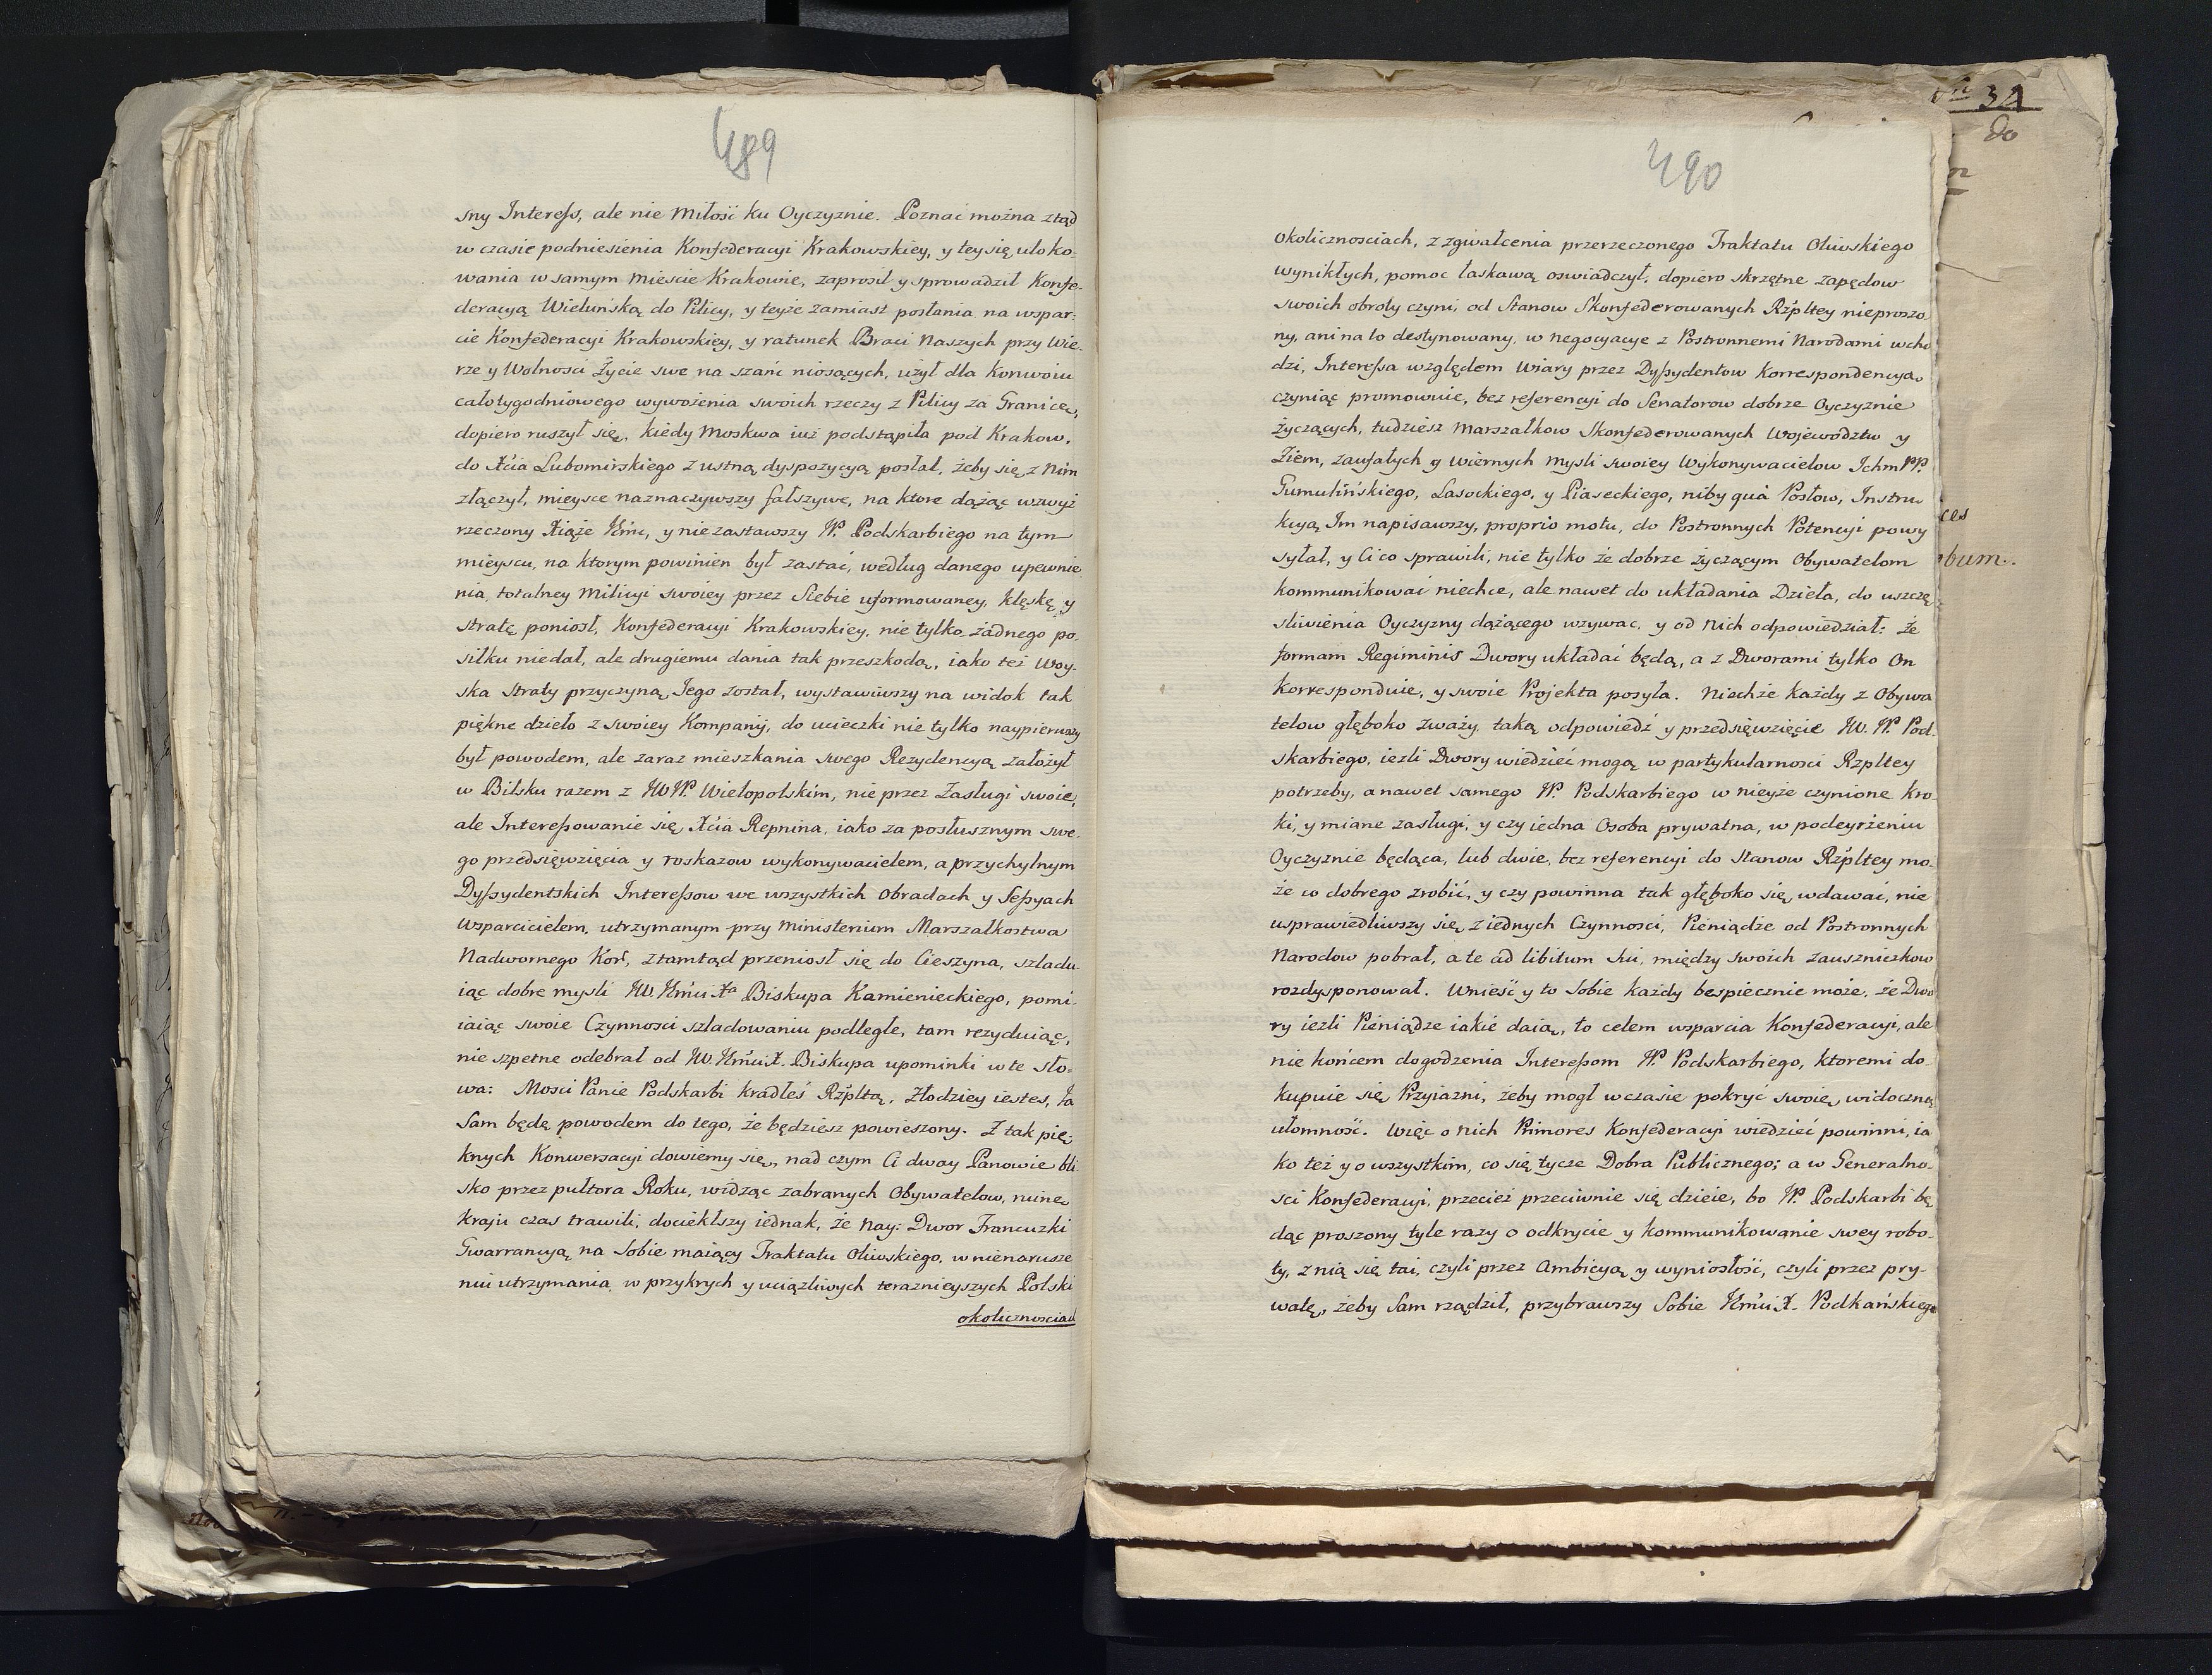 489
sny Interess, ale nie Miłość ku Oyczyznie. Poznać można ztąd
w czasie podniesienia Konfederacyi Krakowskiey, y tey się uloko-
wania w samym Mieście Krakowie, zaprosił y sprowadził Konfe-
deracyą Wieluńską do Pilicy, y teyże zamiast posłania na wspar-
cie Konfederacyi Krakowskiey, y ratunek Braci Naszych przy Wie-
rze y Wolności Życie swe na szańc niosących, użył dla Konwoiu
całotygodniowego wywożenia swoich rzeczy z Pilicy za Granicę,
dopiero ruszył się, kiedy Moskwa iuż podstąpiła pod Krakow,
do Xcia Lubomirskiego z ustną dyspozycyą posłał, żeby się z Nim
złączył, mieysce naznaczywszy fałszywe, na ktore dążąc wzwyż
rzeczony Xiąże Jmć, y niezastawszy W. Podskarbiego na tym
mieyscu, na ktorym powinien był zastać, według danego upewnie
nia, totalney Milicyi swoiey przez Siebie uformowaney, klęskę y
stratę poniosł, Konfederacyi Krakowskiey, nie tylko żadnego po-
siłku niedał, ale drugiemu dania tak przeszkodą, iako też Woy-
ska straty przyczyną Jego został, wystawiwszy na widok tak
piękne dzieło z swoiey Kompanij, do ucieczki nie tylko naypierwszy
był powodem, ale zaraz mieszkania swego Rezydencyą założył
w Bilsku razem z JW. W. Wielopolskim, nie przez Zasługi swoie,
ale Interessowanie się Xcia Repnina, iako za posłusznym swe-
go przedsięwzięcia y roskazow wykonywacielem, a przychylnym
Dyssydentskich Interessow we wszystkich Obradach y Sessyach
Wsparcicielem, utrzymanym przy Ministerium Marszałkostwa
Nadwornego Kor̃, ztamtąd przeniosł się do Cieszyna, szladu-
iąc dobre myśli JW. Jmci Xa Biskupa Kamienieckiego, pomi-
iaiąc swoie Czynności szladowaniu podległe, tam rezyduiąc,
nie szpetne odebrał od JW. Jmci X. Biskupa upominki w te sło-
wa: Mości Panie Podskarbi kradłeś Rzpltą, Złodziey iesteś, Ja
Sam będę powodem do tego, że będziesz powieszony. Z tak pię-
knych Konwersacyi dowiemy się, nad czym Ci dway Panowie bli
sko przez pułtora Roku, widząc zabranych Obywatelow,
Kraju czas trawili, dociekłszy iednak, że Nay: Dwor Francuzki
Gwarrancyą na Sobie maiący Traktatu Oliwskiego, w nienarusze
niu utrzymania, w przykrych y uciążliwych teraznieyszych Polski
okolicznosciach
490
Okolicznosciach, z zgwałcenia przerzeczonego Traktatu Oliwskiego
wynikłych, pomoc łaskawą oswiadczył, dopiero skrzętne zapędow
swoich obroty czyni, od Stanow Skonfederowanych Rzpltey nieproszo
ny, ani na to destynowany, w negocyacye z Postronnemi Narodami wcho
dzi, Interessa względem Wiary przez Dyssydentow Korrespondencyą
czyniąc promownie, bez referencyi do Senatorow dobrze Oyczyznie
życzących, tudziesz Marszałkow Skonfederowanych Wojewodztw y
Ziem, zaufałych y wiernych mysli swoiey Wykonywacielow Ichm PP.
Gumulińskiego, Lasockiego, y Piaseckiego, niby quà Posłow, Instru
kcyą Im napisawszy, proprio motu, do Postronnych Potencyi powy
syłał, y Ci co sprawili, nie tylko że dobrze życzącym Obywatelom
kommunikować niechce, ale nawet do układania Dzieła, do uszczę
sliwienia Oyczyzny dążącego wzywać, y od Nich odpowiedział: że
formam Regiminis Dwory układać będą, a z Dworami tylko On
korresponduie, y swoie Projekta posyła. Niechże każdy z Obywa
telow głęboko zważy, taką odpowiedź y przedsięwzięcie JW. W. Pod-
skarbiego, iezli Dwory wiedzieć mogą w partykularnosci Rzpltey
potrzeby, a nawet samego W. Podskarbiego w nieyże czynione kro-
ki, y miane zasługi, y czy iedna Osoba prywatna, w podeyrżeniu
Oyczyznie będąca, lub dwie, bez referencyi do Stanow Rzpltey mo-
że co dobrego zrobić, y czy powinna tak głęboko się wdawać, nie
usprawiedliwszy się z iednych Czynnosci, Pieniądze od Postronnych
Narodow pobrał, a te ad libitum sui, między swoich zauszniczkow
rozdysponował. Wnieść y to Sobie każdy bespiecznie może, że Dwo
ry iezli Pieniądze iakie daią, to celem wsparcia Konfederacyi, ale
nie końcem dogodzenia Interessom W. Podskarbiego, ktoremi do-
kupuie się Przyiazni, żeby mogł w czasie pokryć swoię widoczną
ułomność. Więc o nich Primores Konfederacyi wiedzieć powinni, ia
ko też y o wszystkim, co się tycze Dobra Publicznego; a w Generalno-
sci Konfederacyi, przecież przeciwnie się dzieie, bo W. Podskarbi bę
dąc proszony tyle razy o odkrycie y kommunikowanie swey robo-
ty, z nią się tai, czyli przez Ambicyą y wyniosłość, czyli przez pry-
watę, żeby Sam rządził, przybrawszy Sobie Jmci X. Podkańskiego
34
do
ces
bum.